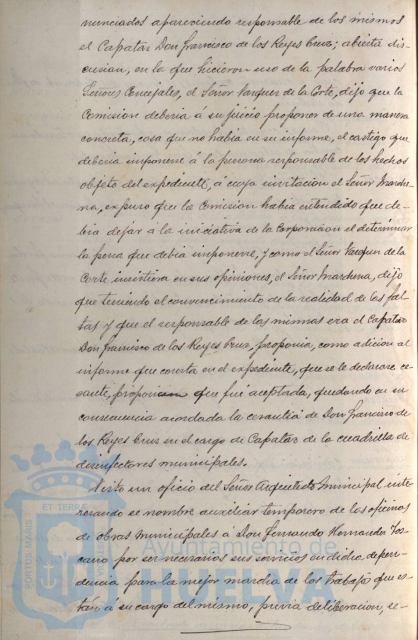 nunciados apareciendo responsable de los mismos
el Capataz Don Francisco de los Reyes Cruz; abierta dis-
cusion, en la que hicieron uso de la palabra varios
Señores Concejales, el Señor Vazquez de la Corte, dijo que la
Comision deberia á su juicio proponer de una manera
concreta, cosa que no habia en su informe, el castigo que
deberia imponerse á la persona responsable de los hechos
objeto del expediente, á cuya invitacion el Señor Marche-
na, expuso que la Comision habia entendido que de-
bia dejar á la iniciativa de la Corporacion el determinar
la pena que debia imponerse, y como el Señor Vazquez de la
Corte, insistiera en sus opiniones, el Señor Marchena, dijo
que teniendo el convencimiento de la realidad de las fal-
tas y que el responsable de las mismas era el Capataz
Don Francisco de los Reyes Cruz, proponia, como adicion al
informe que consta en el expediente, que se le declarase ce-
sante, proposicion que fué aceptada, quedando en su
consecuencia acordada la cesantia de Don Francisco de
los Reyes Cruz en el cargo de Capataz de la cuadrilla de
desinfectores municipales.
Visto un oficio del Señor Arquitecto Municipal inte-
resando se nombre auxiliar temporero de las oficinas
de obras Municipales á Don Fernando Hernandez Tos-
cano por ser necesarios sus servicios en dicha depen-
dencia para la mejor marcha de los trabajos que es-
tan á su cargo del mismo, previa deliberacion, se
PORTUS MARIS
ET TERRAE
Ayuntamiento de
HUELVA